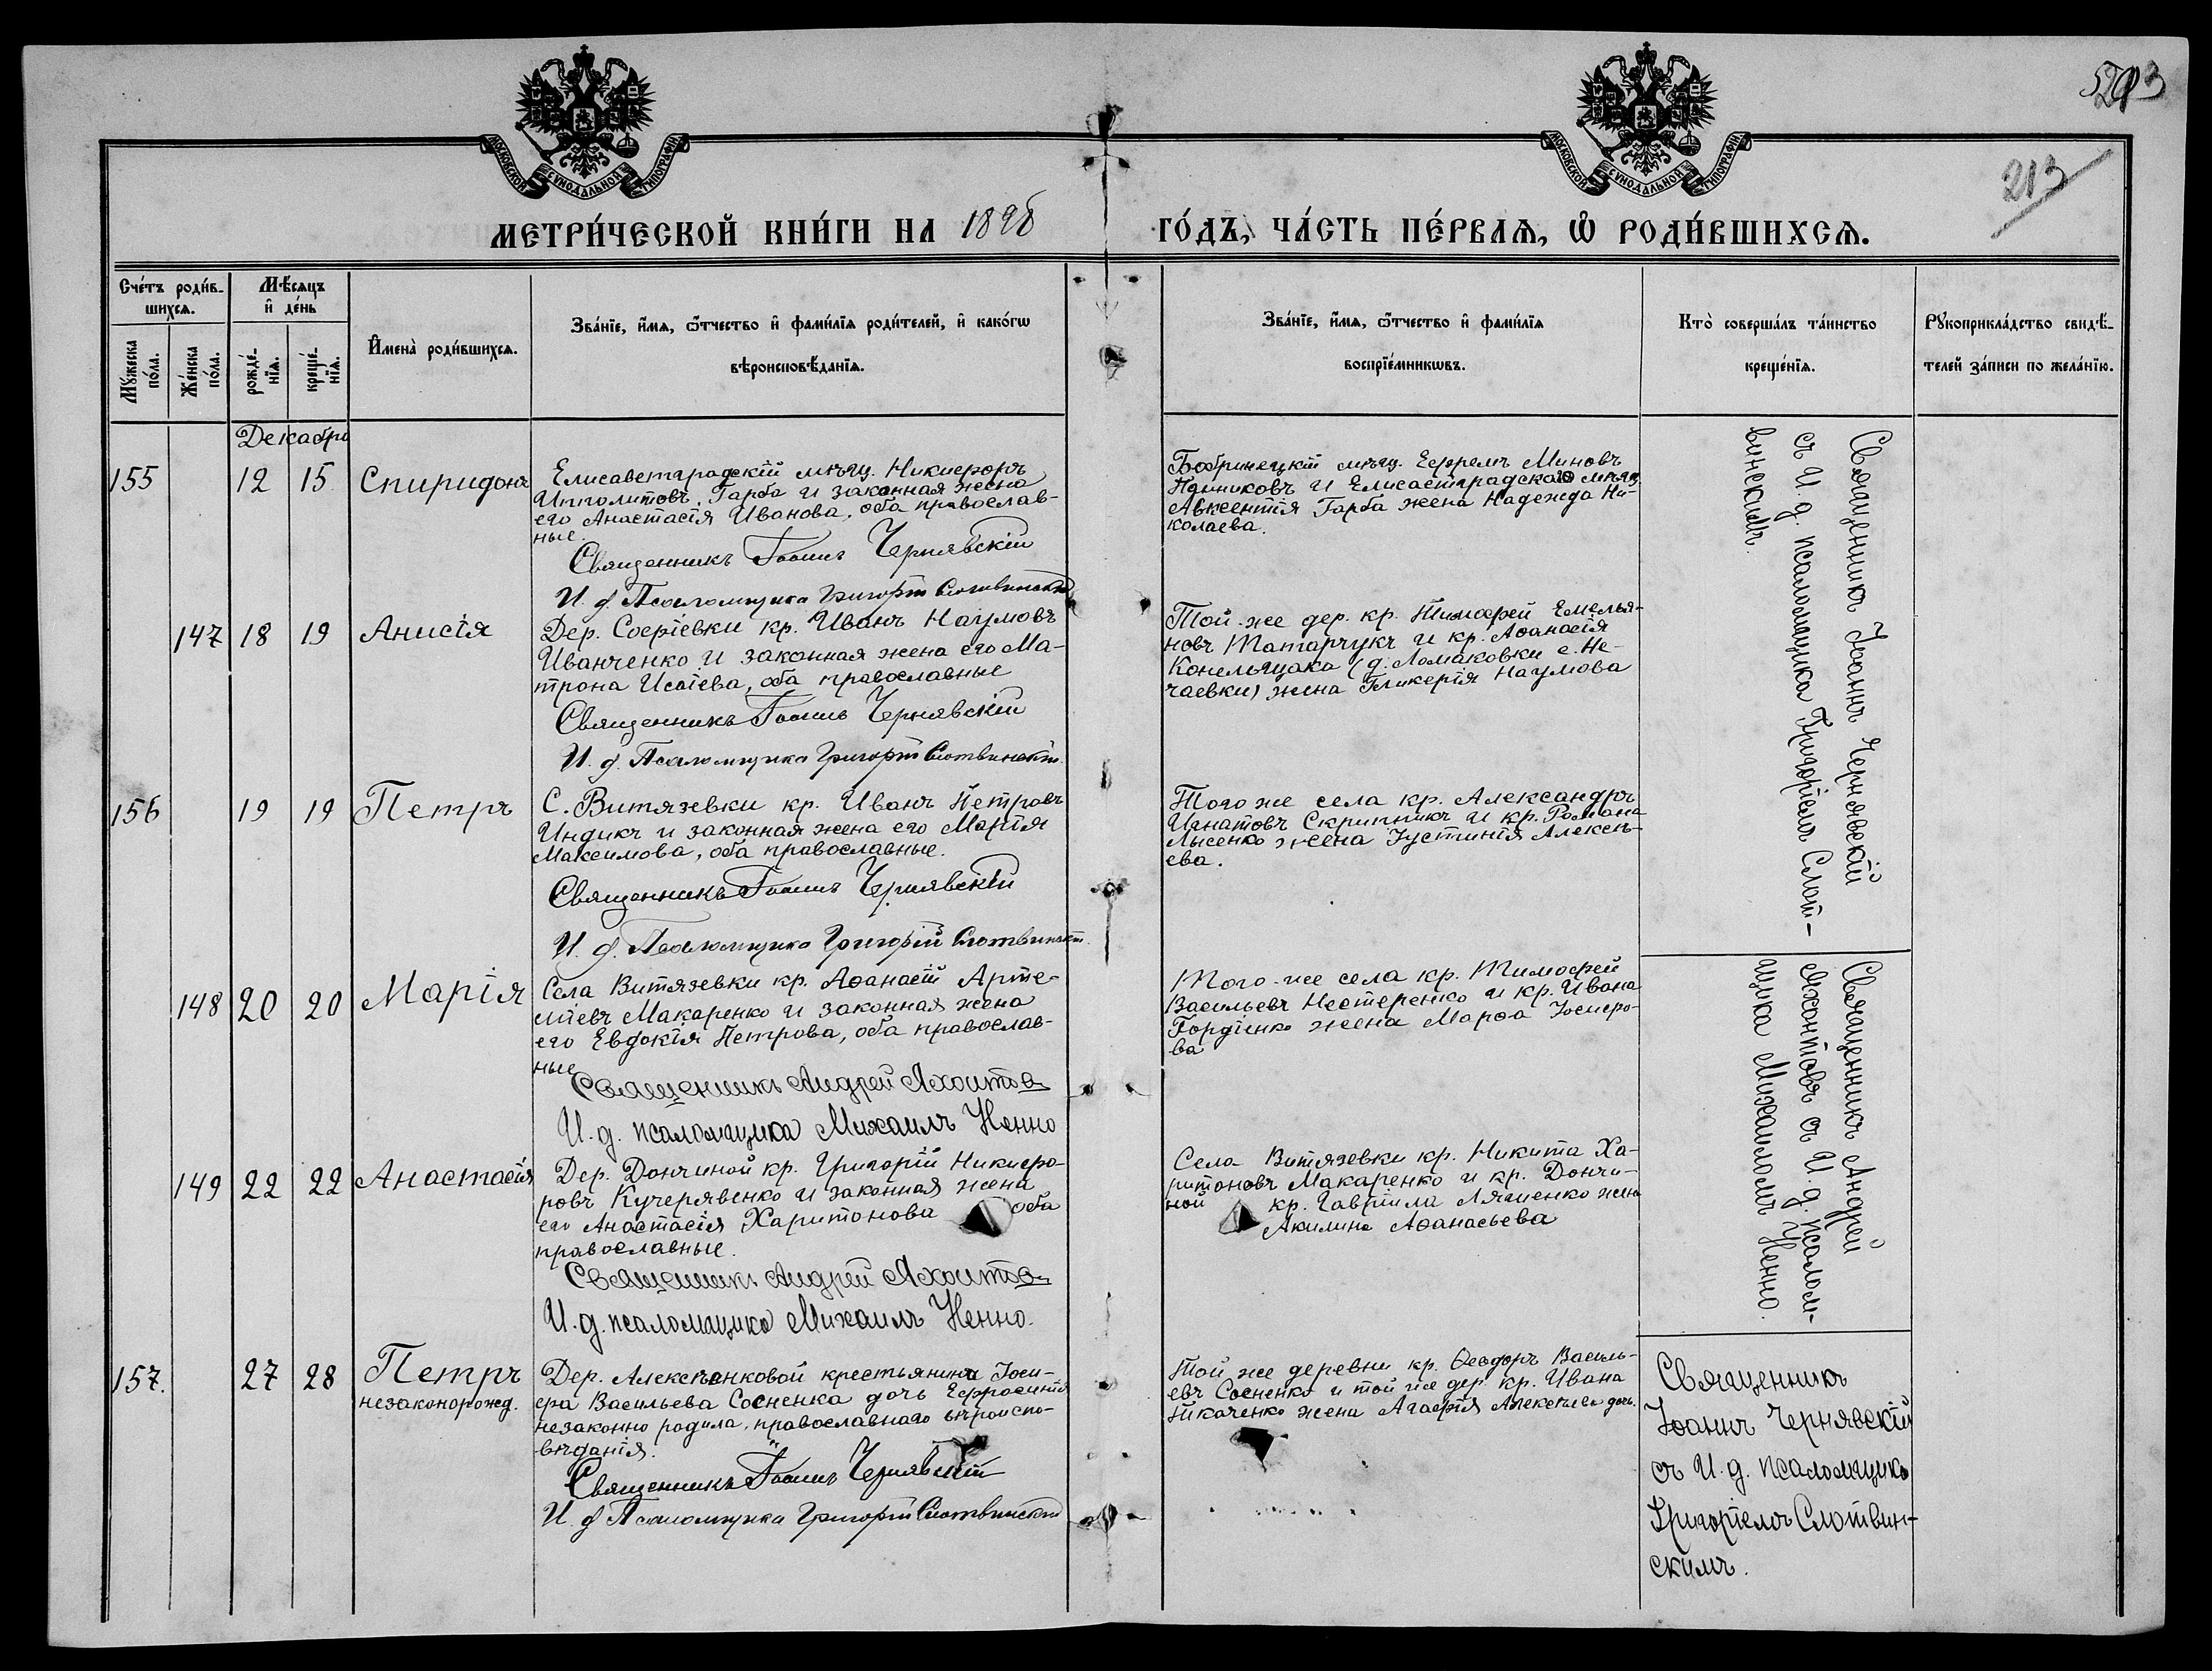 5213
213
МОСКОВСКОЙ СѴНОДАЛЬНОЙ ТИПОГРАФІИ
МОСКОВСКОЙ СѴНОДАЛЬНОЙ ТИПОГРАФІИ
МЕТРИ́ЧЕСКОЙ КНИ́ГИ НА 1898 ГО́ДЪ, ЧА́СТЬ ПЕ́РВАѦ, Ѡ҆ РОДИ́ВШИХСѦ.
Сче́тъ роди́в-
шихсѧ.
Мꙋ́жеска
по́ла.
Же́нска
по́ла.
Мѣ́сѧцъ
и҆ де́нь
рожде́-
нїѧ.
креще́-
нїѧ.
И҆мена̀ роди́вшихсѧ.
Зва́нїе, и҆́мѧ, ѻ҆́тчество и҆ фами́лїѧ роди́телей, и҆ како́гѡ
вѣроисповѣ́данїѧ.
Зва́нїе, и҆́мѧ, ѻ҆́тчество и҆ фами́лїѧ
воспрїе́мникѡвъ.
Кто̀ соверша́лъ та́инство
креще́нїѧ.
Рꙋкоприкла́дство свидѣ́-
телей за́писи по жела́нїю.
Декабря
155
12
15
Спиридонъ
Елисаветградскій мѣщ. Никифоръ
Ипполитовъ Гарба и законная жена
его Анастасія Иванова, оба православ-
ные.
Священникъ Іоаннъ Чернявскій
И. д. Псаломщика Григорій Слотвинскій
Бобринецкій мѣщ. Ефремъ Миновъ
и Елисаветградскаго мѣщ.
Авксентія Гарба жена Надежда Ни-
колаева.
147
18
19
Анисія
Дер. Софіевки кр. Иванъ Наумовъ
Иванченко и законная жена его Ма-
трона Исаіева, оба православные
Священникъ Іоаннъ Чернявскій
И. д. Псаломщика Григорій Слотвинскій.
Той-же дер. кр. Тимофей Емелья-
новъ Татарчукъ и кр. Аѳанасія
(д. Ломаковки с. Не-
чаевки) жена Гликерія Наумова
156
19
19
Петръ
С. Витязевки кр. Иванъ Петровъ
Индикъ и законная жена его Марія
Максимова, оба православные.
Священникъ Іоаннъ Чернявскій
И. д. Псаломщика Григорій Слотвинскій.
Того же села кр. Александръ
Игнатовъ Скрипникъ и кр. Романа
Лысенко жена Іустинія Алексѣ-
ева.
Священникъ Іоаннъ Чернявскій
съ И. д. псаломщика Григоріемъ Слот-
винскимъ.
148
20
20
Марія
Села Витязевки кр. Аѳанасій Арте-
міевъ Макаренко и законная жена
его Евдокія Петрова, оба православ-
ные
Священникъ Андрей Яхонтовъ
И. д. псаломщика Михаилъ Ненно
Того-же села кр. Тимофей
Васильевъ Нестеренко и кр. Ивана
Гордіенко жена Марѳа Іосифо-
ва
149
22
22
Анастасія
Дер. Дончиной кр. Григорій Никифо-
ровъ Кучерявенко и законная жена
его Анастасія Харитонова оба
православные.
Священникъ Андрей Яхонтовъ
И. д. псаломщика Михаилъ Ненно.
Села Витязевки кр. Никита Ха-
ритоновъ Макаренко и кр. Дончи-
ной кр. Гавріила Ляшенко жена
Акилина Аѳанасьева
Священникъ Андрей
Яхонтовъ съ И. д. псалом-
щика Михаиломъ Ненно.
157.
27
28
Петръ
незаконорожд.
Дер. Алексѣенковой крестьянина Іоси-
фа Васильева Сосненка дочь Ефросинія
незаконно родила, православнаго вѣроиспо-
вѣданія.
Священникъ Іоаннъ Чернявскій
И. д. Псаломщика Григорій Слотвинскій
Той же деревни кр. Ѳеодоръ Василь-
евъ Сосненко и той же дер. кр. Ивана
Ткаченко жена Агафія Алексѣева дочь.
Священникъ
Іоаннъ Чернявскій
съ И. д. псаломщика
Григоріемъ Слотвин-
скимъ.